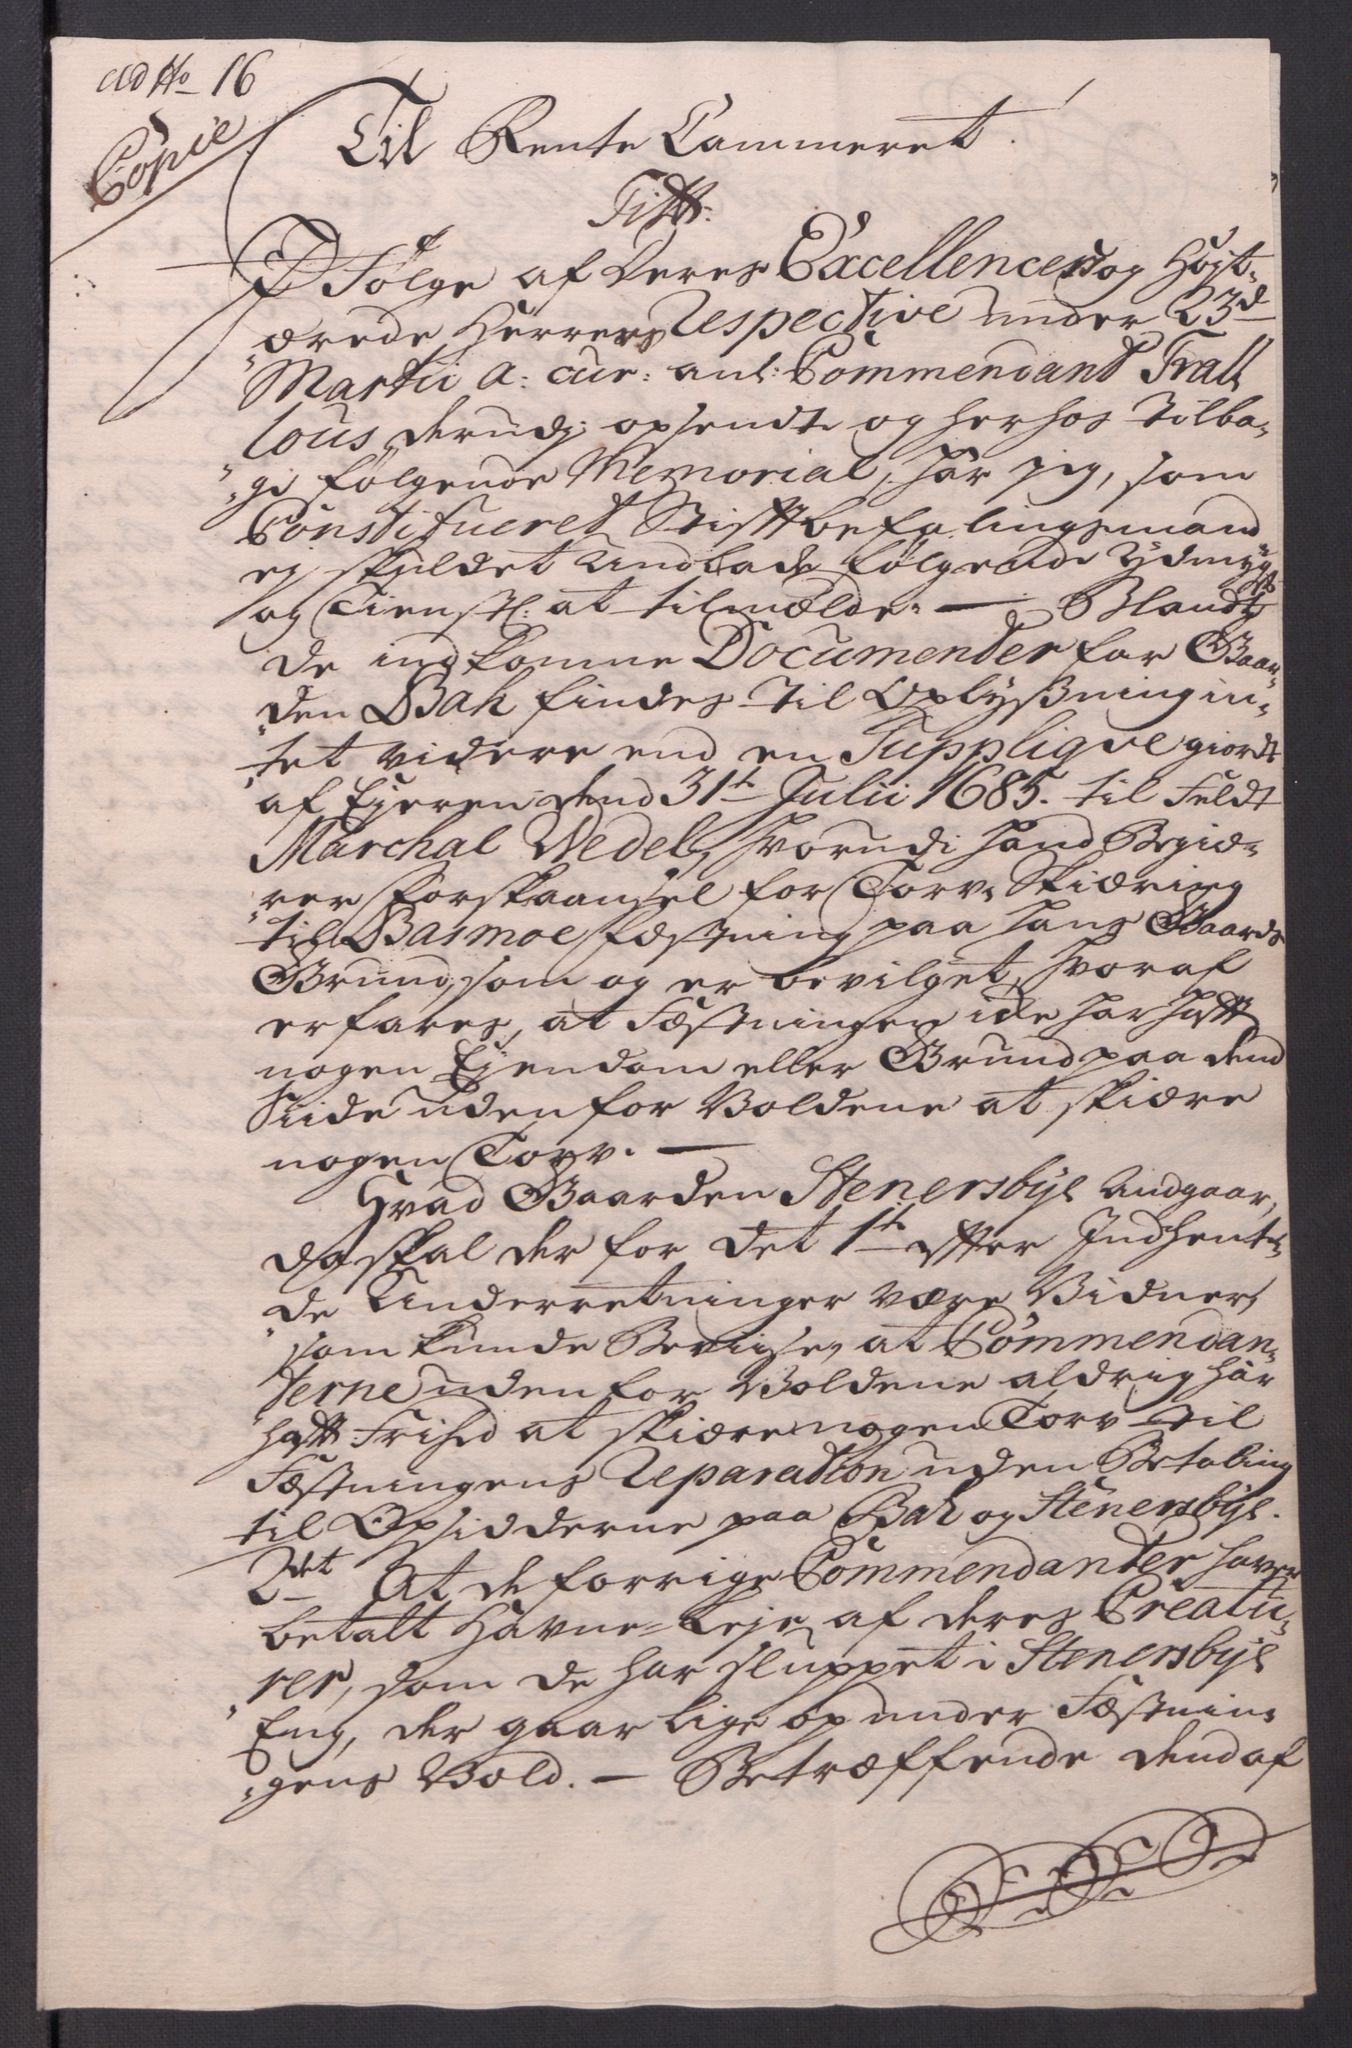 ad No 16
Copie
Til Rente Cammeret.
Titt:
I Følge af Deres Excellencers og Høyt-
ærede Herrers Respective under 23d
Martii a: cur: anl: Commendant Trall
lous, derudj opsendte og herhos tilba-
ge følgende Memorial, har jeg, som
Constitueret Stiftbefalingsmand
ej skyldet undlade følgende Ydmygst
og Tienstl: at tilmælde. — Blandt
de indkomne Documenter for Gaar-
den Bah findes til Oplysning in-
tet videre end en Supplique giordt
af Ejeren dend 31te Julii 1685. til Feldt
Marchal Wedel, hvorudi hand Begiæ-
rer forskaansel for Torv-Skiæring
til Basmoe Fæstning paa hans Gaards
Grund, som og er bevilget, hvoraf
erfares, at Fæstningen icke har hafft
nogen Ejendom eller Grund paa dend
Siide uden for Voldene at skiære
nogen Torv. —
Hvad Gaarden Stenersbye andgaar,
da skal der for det 1te effter Indhent-
de Underretninger være Vidner,
som kunde Beviise, at Commendan-
terne uden for Voldene aldrig har
hafft Frihed at skiære nogen Torv til
Fæstningens Reparation uden Betaling
til Opsidderne paa Bah og Stenersbye.
2det At de forrige Commendanter haver
betalt Havne-Leje af deres Creatu-
rer, som de har sluppet i Stenersbye
Eng, der gaar lige op under Fæstnin-
gens Vold. — Betræffende dend af